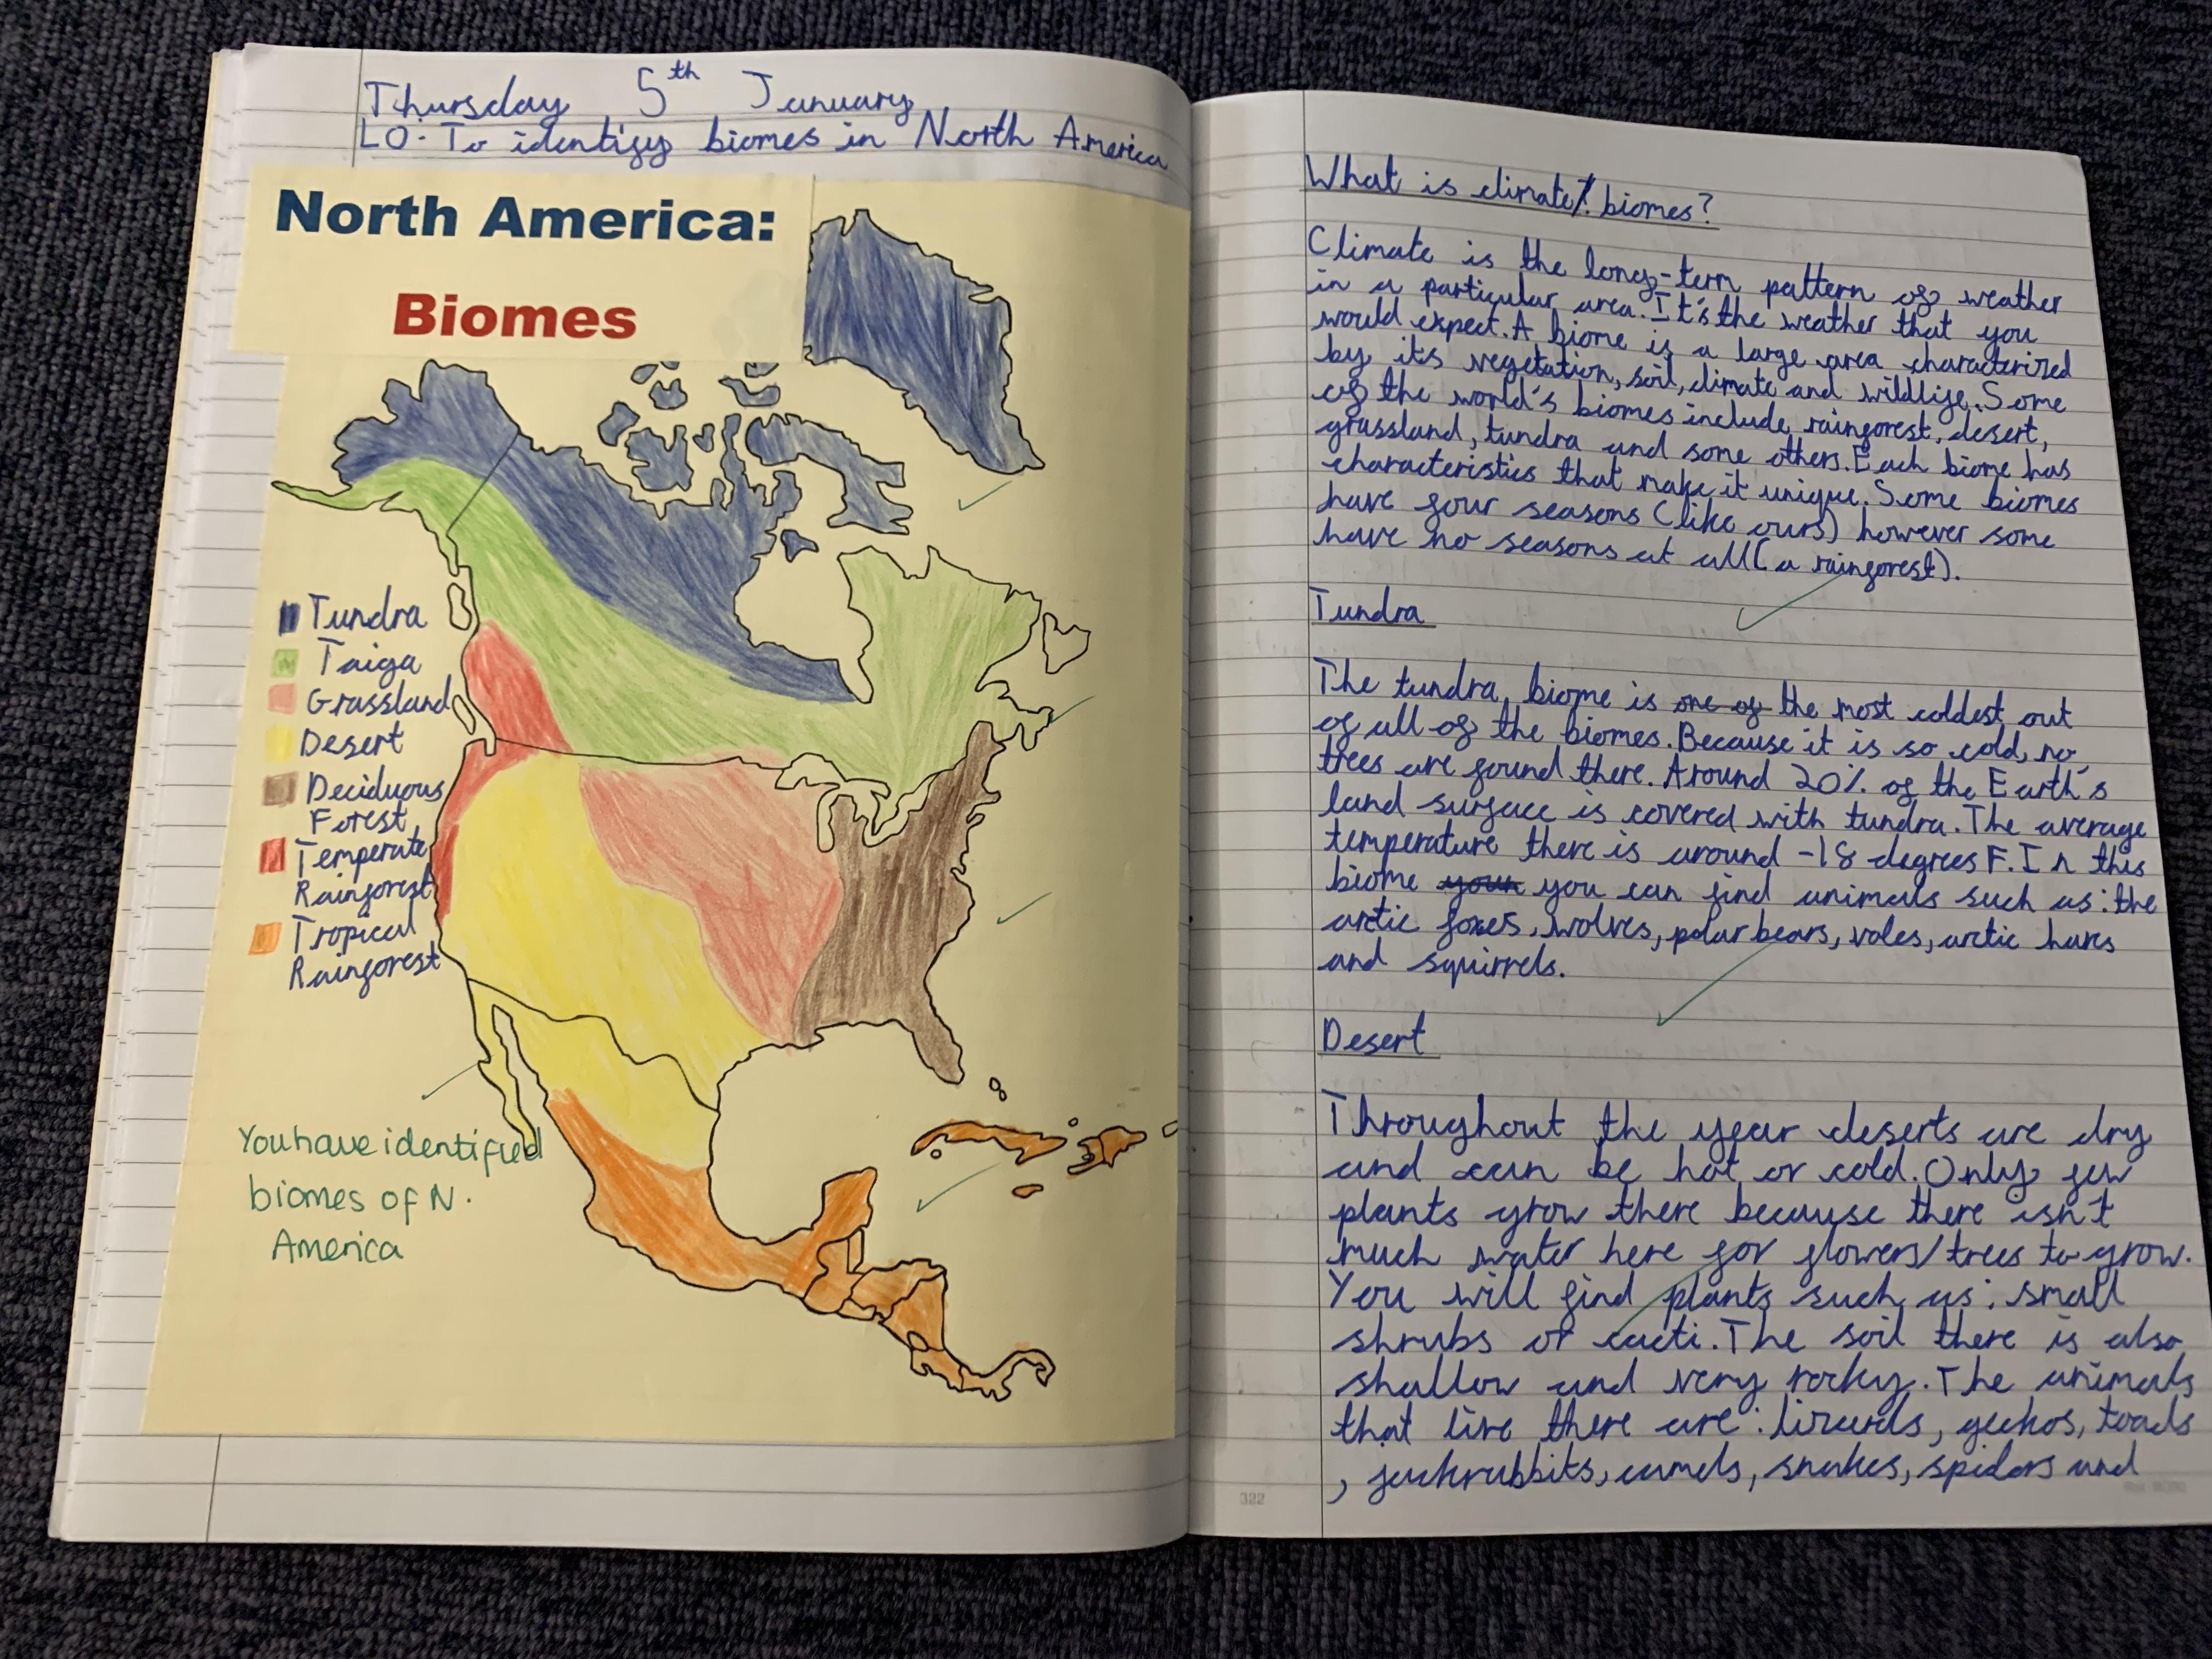 Thursday 5th January
LO: To identify biomes in North America
North America:
Biomes
Tundra
Taiga
Grassland
Desert
Deciduous
Forest
Temperate
Rainforest
Tropical
Rainforest
You have identified
biomes of N.
America
What is climate/biomes?
Climate is the long-term pattern of weather
in a particular area. It's the weather that you
would expect. A biome is a large area characterized
by its vegetation, soil, climate and wildlife. Some
of the world's biomes include rainforest, desert,
grassland, tundra and some others. Each biome has
characteristics that make it unique. Some biomes
have four seasons (like ours) however some
have no seasons at all (a rainforest).
Tundra
The tundra biome is one of the most coldest out
of all of the biomes. Because it is so cold, no
trees are found there. Around 20% of the Earth's
land surface is covered with tundra. The average
temperature there is around -18 degrees F. In this
biome you can find animals such as: the
arctic foxes, wolves, polar bears, voles, arctic hares
and squirrels.
Desert
Throughout the year deserts are dry
and can be hot or cold. Only few
plants grow there because there isn't
much water here for flowers/trees to grow.
You will find plants such as: small
shrubs or cacti. The soil there is also
shallow and very rocky. The animals
that live there are: lizards, geckos, toads
, jackrabbits, camels, snakes, spiders and
322